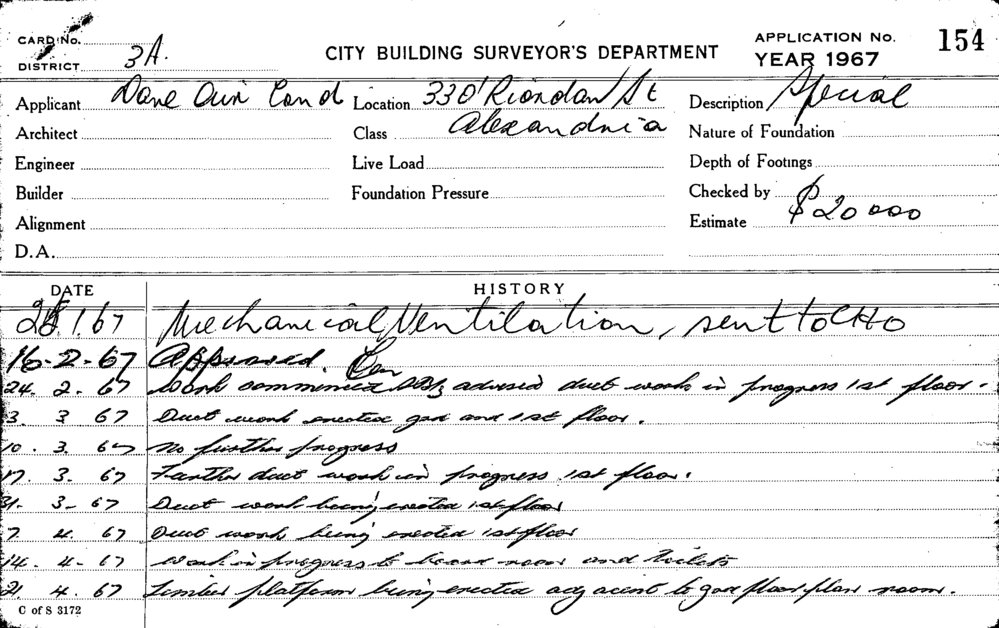 CARD No.
DISTRICT 3A.
CITY BUILDING SURVEYOR'S DEPARTMENT
APPLICATION No. 154
YEAR 1967
Applicant Dane Air Cond Location 330 Riordan St Description Special
Architect Class Alexandria Nature of Foundation
Engineer Live Load Depth of Footings
Builder Foundation Pressure Checked by
Alignment Estimate $20 000
D.A.
DATE HISTORY
1.67 Mechanical Ventilation, sent to CHO
16-2-67 Approved.
24. 2. 67 Work commenced advised duct work in progress 1st floor.
3. 3 67 Duct work erected grd and 1st floor.
10. 3. 67 No further progress
17. 3. 67 Further duct work in progress 1st floor.
31. 3- 67 Duct work being erected 1st floor
7 4. 67 Duct work being erected 1st floor
14. 4- 67 work in progress to board room and toilets
21. 4. 67 Timber platform being erected adjacent to grd floor plan room.
C of S 3172